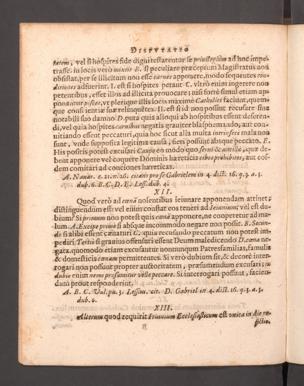 DISPUTATIO
terem, vel si hospites fide digni testarentur se privilegium ad hoc impe-
trasse: in locis verò B. si peculiare præceptum Magistratus non
obsistat, per se illicitum non esse carnes apponere, modo sequentes
adfuerint. I. est si hospites petant C. vltrò enim ingerere non
petentibus, esset illos ad illicita provocare; nisi forte simul etiam
pisces, vt plerique illis locis maximè Catholici faciunt, quem-
que conscientiæ suæ relinquētes. II. est si id non possint recusare sine
notabili suo damno D. puta quia alioqui ab hospitibus essent deseren-
di, vel quia hospites carnibus negatis graviter blasphemando, aut con-
tinuando essent peccaturi, quia hoc sicut alia multa mala non
sunt, vnde supposita legitima causa,
His positis potest excusari
bent apponere vel coquere Dominis hæreticis cibos prohibitos, aut eos-
dem comitari ad conciones hæreticas.
A. Navar. c. 21. nu. in 4. dist. 16. q. 3. a. 3.
dub. 6. B. C. D. E. Less. dub. 4.
XII.
Quod verò ad cœnā nolentibus ieiunare apponendam attinet;
distinguendum est: vel enim constat eos teneri ad Ieiunium vel est du-
bium! Si primum non potest quis cœnā apponere, ne cooperetur ad ma-
lum. A. Excipe primò si absque incommodo negare non posset. B. Secun-
dò si alibi essent cœnaturi C: quia recusando peccatum non potest im-
pediri. Tertiò si graviter offensuri essent Deum maledicendo D. cœna ne-
gata, quomodo etiam excusabuntur nonnunquam Patresfamilias, famuli
& domestici cœnam permittentes. Si verò dubium sit, & decorè inter-
rogari non possint propter auctoritatem, prætermittendum excusari; in
dubio enim nemo præsumitur velle peccare. Si interrogari possunt, facien-
dum prout respondebunt.
A. B. C. Val. pu. 3. Lessius. cit. D. Gabriel in 4. dist. 16. q. 3. a. 3.
dub. 6.
XIII.
Alterum quod requirit Ieiunium Ecclesiasticum est vnica in die re-
B fectio.